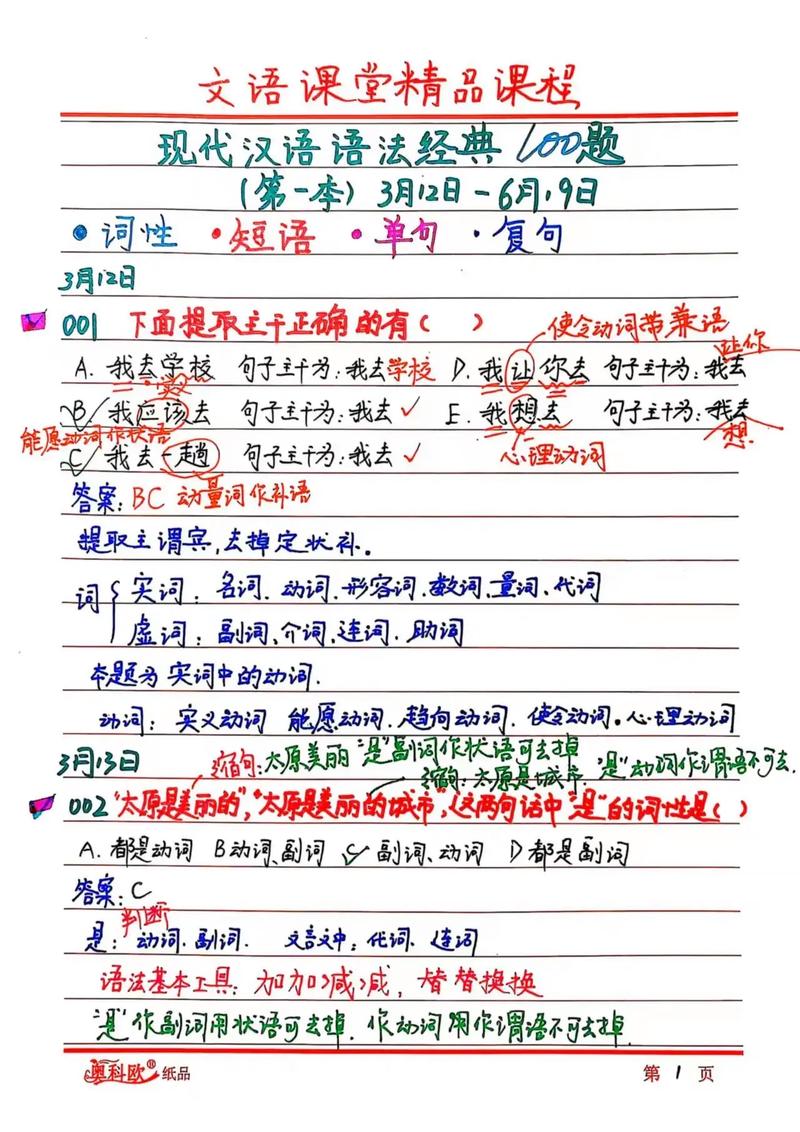 文语课堂精品课程
现代汉语语法经典100题
(第一本) 3月12日-6月19日
•词性 •短语 •单句 •复句
3月12日
001 下面提取主干正确的有( )
使令动词带兼语
让你
A. 我去学校 句子主干为:我去学校 D. 我让你去 句子主干为:我去
宾
B✓ 我应该去 句子主干为:我去✓ E. 我想去 句子主干为:我去
能愿动词作状语
想
C✓ 我去一趟 句子主干为:我去✓ 心理动词
答案:BC 动量词作补语
提取主谓宾,去掉定状补。
词{实词:名词、动词、形容词、数词、量词、代词
虚词:副词、介词、连词、助词
本题为实词中的动词.
动词:实义动词 能愿动词、趋向动词、使令动词。心理动词
3月13日 缩句:太原美丽 "是"副词作状语可去掉
缩句:太原是城市,"是"动词作谓语不可去.
002 "太原是美丽的","太原是美丽的城市",这两句话中"是"的词性是( )
A. 都是动词 B动词、副词 C✓副词、动词 D都是副词
答案:C
判断
是:动词、副词. 文言文中:代词、连词
语法基本工具:加加减减,替替换换
"是"作副词用状语可去掉.作动词用作谓语不可去掉.
奥科欧®纸品 第 1 页